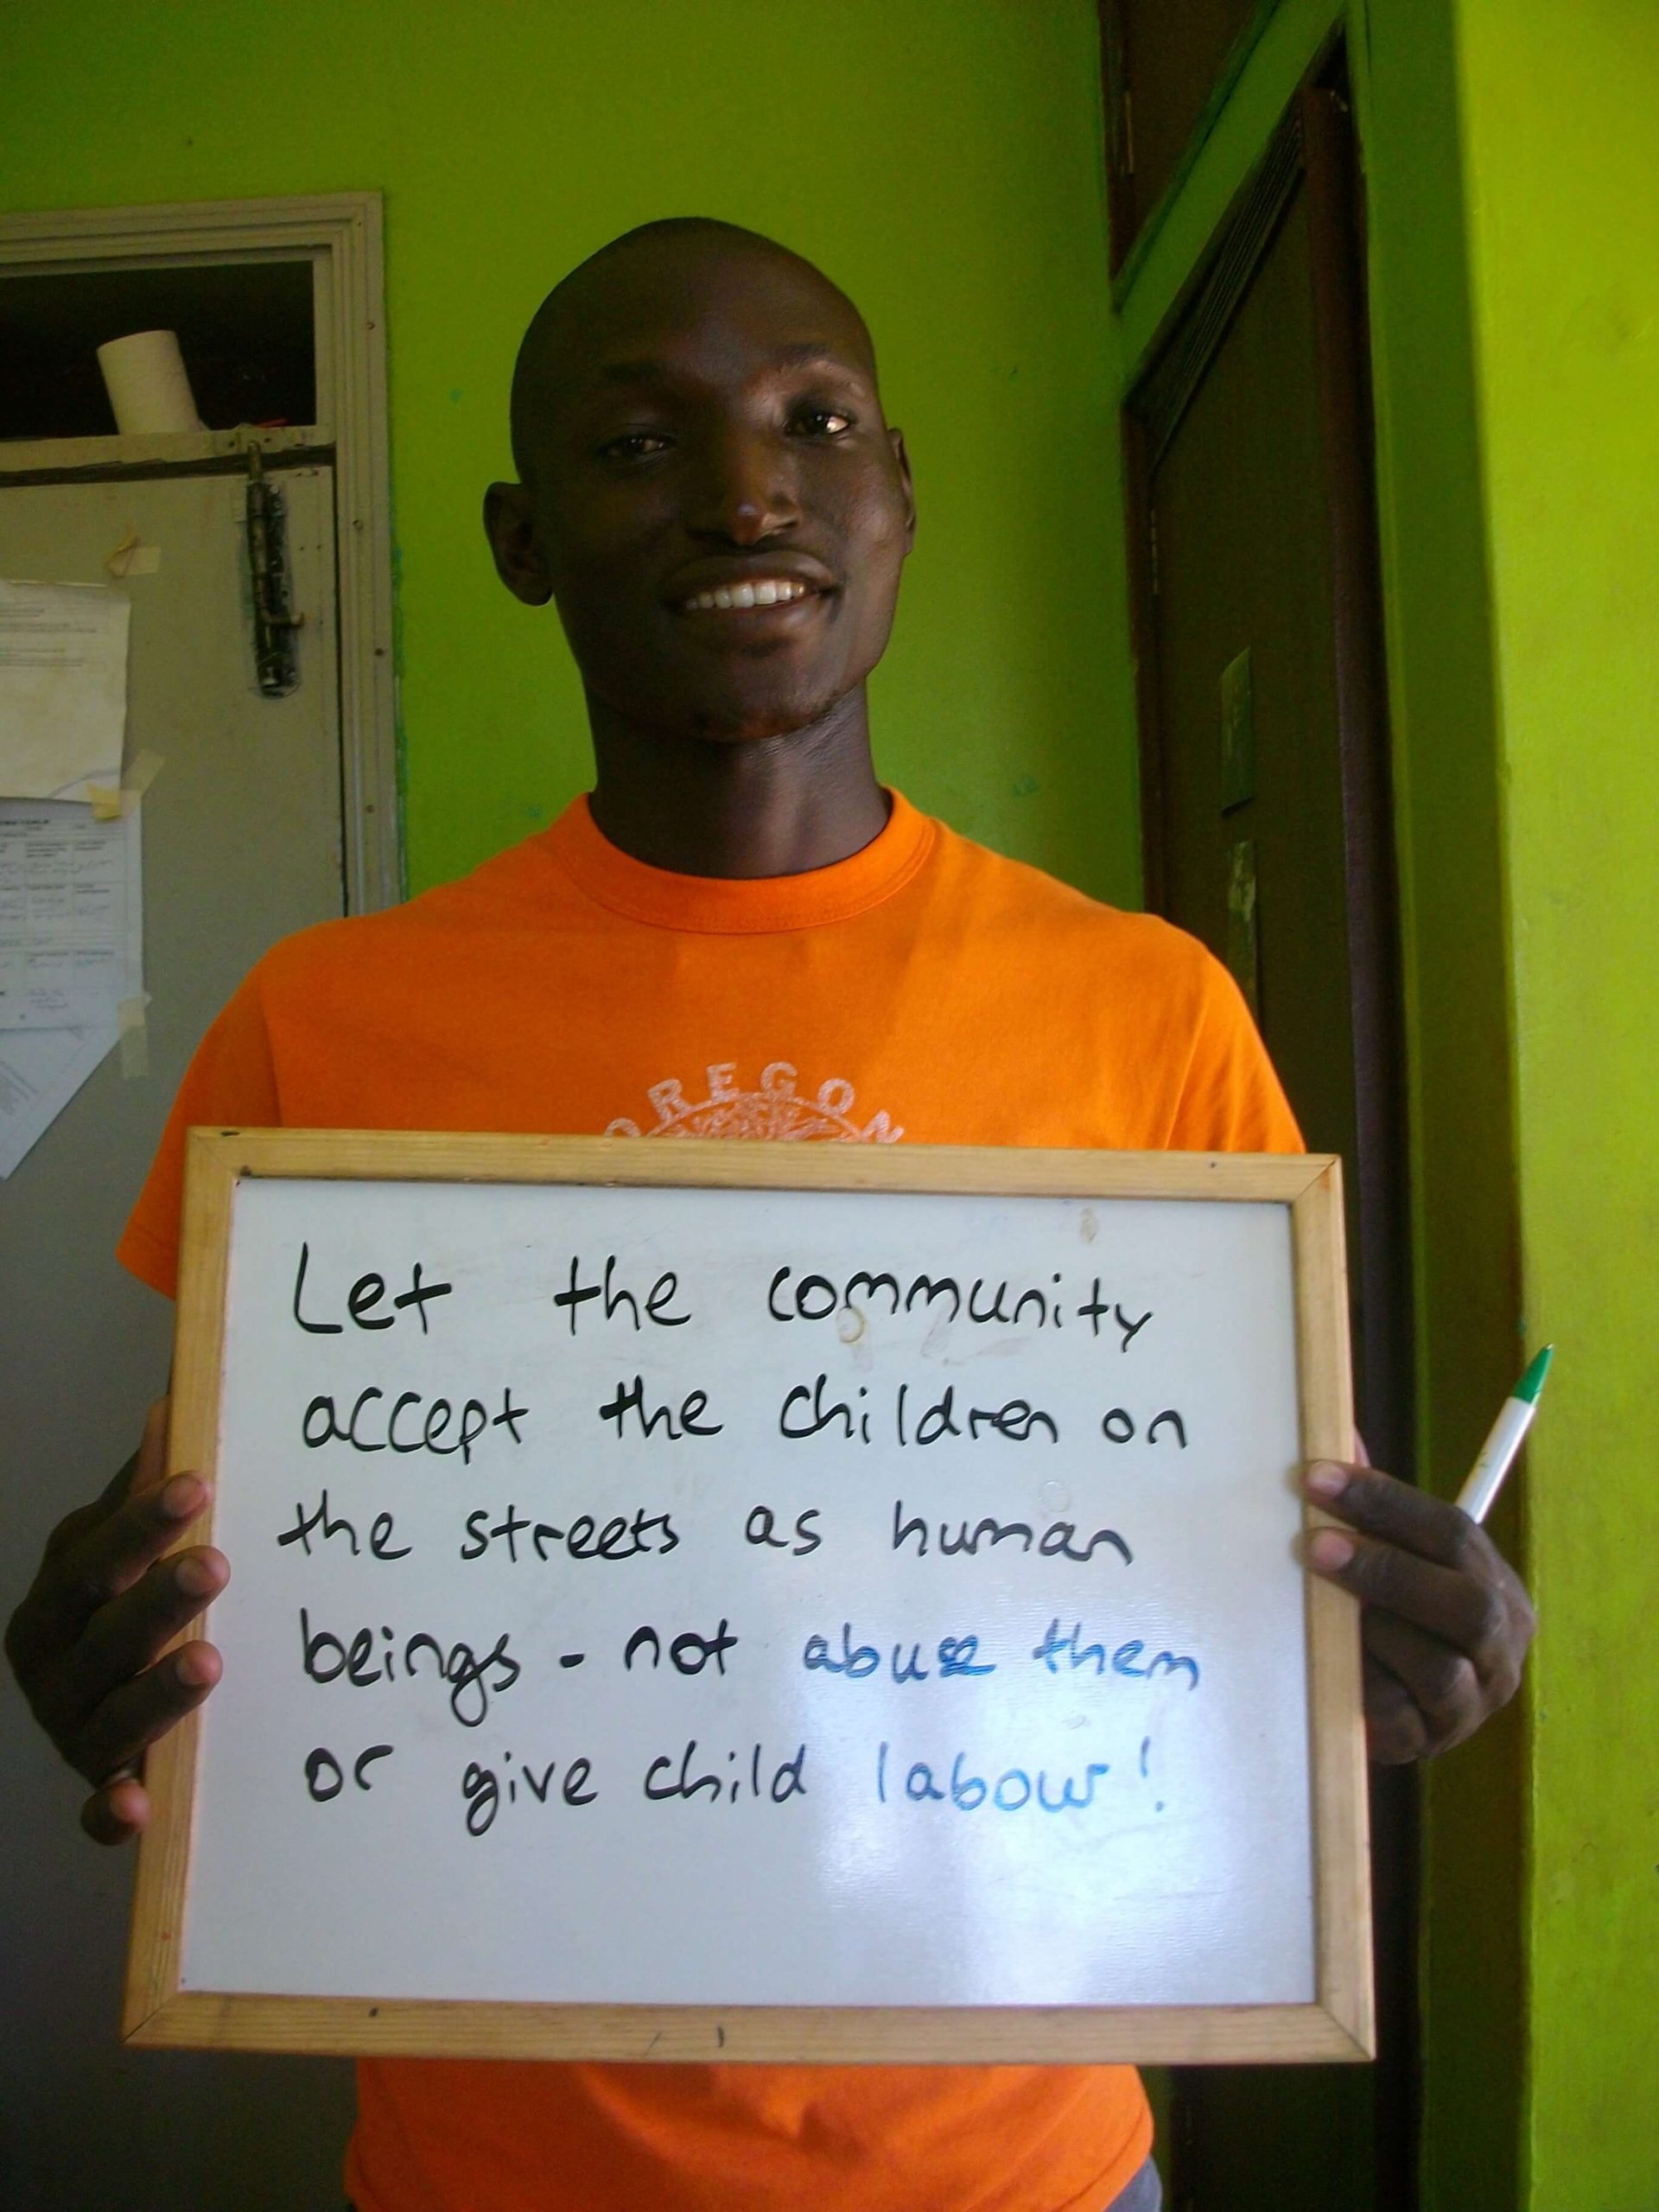 OREGON
Let the community
accept the children on
the streets as human
beings - not abuse them
or give child labour!